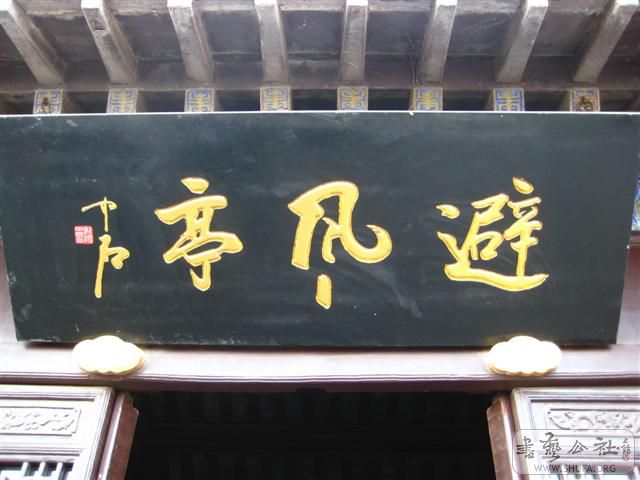 避風亭
中石
書藝公社
WWW.SHUFA.ORG